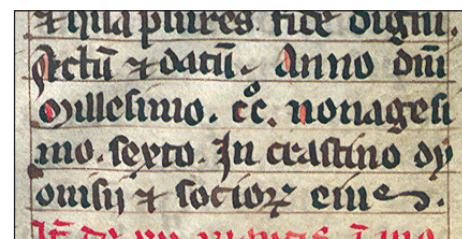 & alii q̃ plures fide digni.
Actū ⁊ datū. Anno dñi
Millesimo. cͦc. nonagesi
mo. sexto. In crastino dy
onisij ⁊ socioꝝ eius.